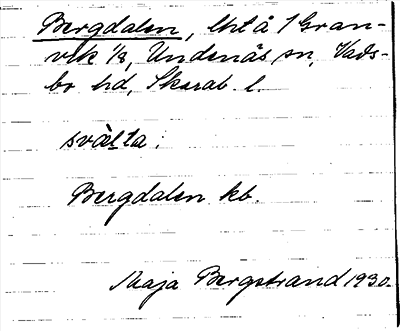 Bergdalen, lht å 1 Gran-
vik 1/8, Undenäs sn, Vads-
bo hd, Skarab. l.
svälta:
Bergdalen kb.
Maja Bergstrand 1930.